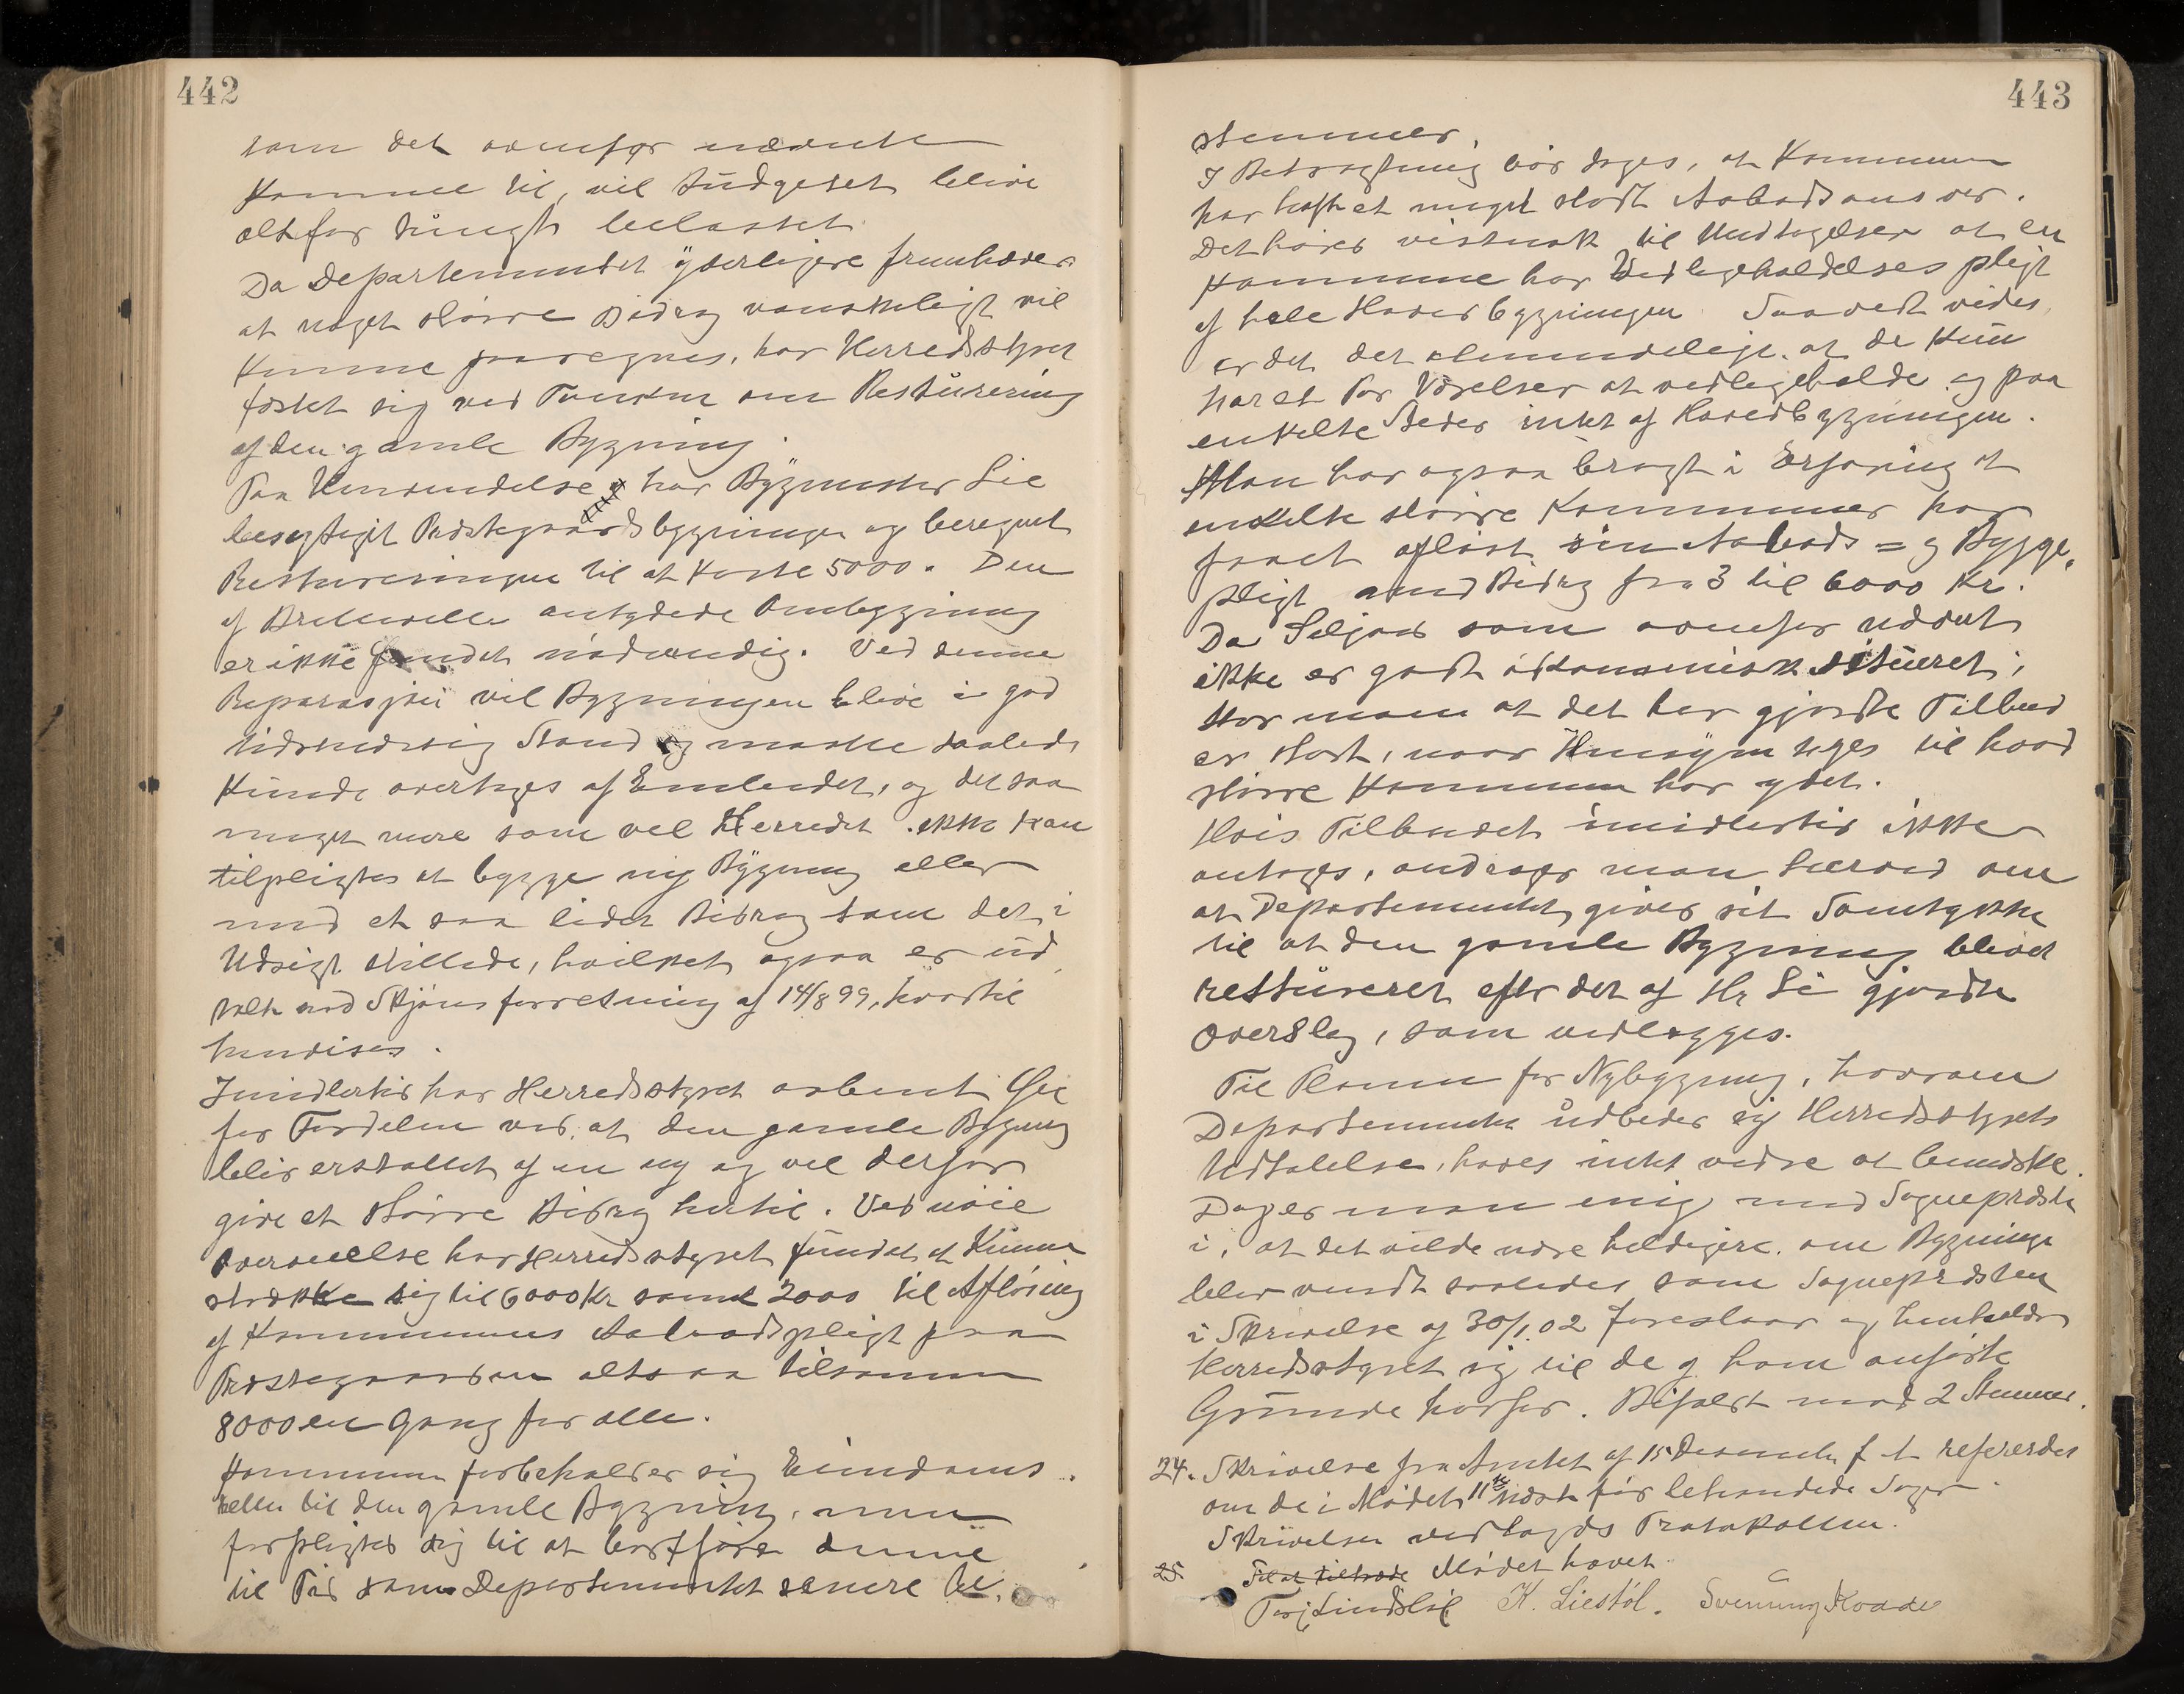 442
som det ovenfor nævnte
komme til, vil Budgetet blive
altfor tungt belastet.
Da Departementet yderligere fremhæver
at noget større Bidrag vanskeligt vil
kunne paaregnes, har Herredsstyret
fæstet sig ved Tanken om Resturering
af den gamle Bygning.
Paa Henvendelse har Bygmester Lie
besigtiget Præstegaardsbygningen og beregnet
Restureringen til at koste 5000. Den
af antydede Ombygning
er ikke fundet nødvendig. Ved denne
Reparasjon vil Bygningen blive i god
tidsmæssig Stand og maatte saaledes
kunde overtages af Embedet, og det saa
meget mere som vel Herredet ikke kan
tilpligtes at bygge ny Bygning eller
med et saa lidet Bidrag som det i
Udsigt stillede, hvilket ogsaa er ud
talt ved Skjønsforretning af 14/8 99, hvortil
henvises.
Imidlertid har Herredsstyret aabent Øie
for Fordelen ved, at den gamle Bygning
blir erstattet af en ny og vil derfor
give et større Bidrag hertil. Ved nøie
Overveielse har Herredsstyret fundet at kunne
strække sig til 6000 Kr samt 2000 til Afløsning
af Kommunens Aabodspligt paa
Præstegaarden altsaa tilsammen
8000 en Gang for alle.
Kommunen forbeholder sig Eiendoms
retten til den gamle Bygning, men
forpligter sig til at bortføre denne
til Tid som Departementet senere be.
443
stemmer.
I Betragtning bør tages, at Kommunen
har haft et meget stort Aabodsansvar.
Det hører vistnok til Undtagelsen at en
Kommune har Vedligeholdelsespligt
af hele Hovedbygningen. Saavidt vides
er det det almindelige, at de kun
har et Par Værelser at vedligeholde og paa
enkelte Steder intet af Hovedbygningen.
Man har ogsaa bragt i Erfaring at
enkelte større Kommuner har
faaet afløst sin Aabods = og Bygge„
pligt mod Bidrag fra 3 til 6000 Kr.
Da Seljord som ovenfor nævnt
ikke er godt økonomisk situeret,
tror man at det her gjorte Tilbud
er stort, naar Hensyn tages til hvad
større Kommuner har ydet.
Hvis Tilbudet imidlertid ikke
antages, andrager man herved om
at Departementet giver sit Samtykke
til at den gamle Bygning blivet
restureret efter det af Hr Lie gjorte
Overslag, som vedlægges.
Til Planen for Nybygning, hvorom
Departementet udbeder sig Herredsstyrets
Udtalelse, haves intet videre at bemærke.
Dog er man enig med Sognepræsten
i, at det vilde være heldigere, om Bygningen
blev vendt saaledes som Sognepræsten
i Skrivelse af 30/1.02 foreslaar og henholder
Herredsstyret sig til de af ham anførte
Grunde herfor. Bifaldt mod 2 Stemmer.
24. Skrivelse fra Amtet af 15 Desember f. A. refereredes
om de i Mødet 11te næst før behandlede Sager.
Skrivelsen vedlagdes Protokollen.
25. Mødet hævet
K. Liestøl. Svenung